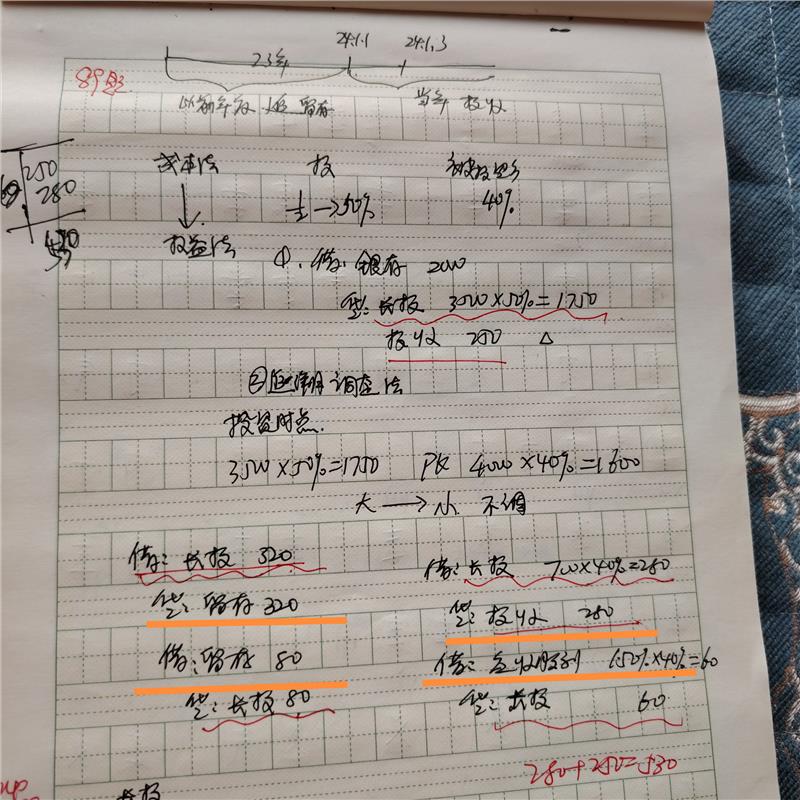 24.1.1 24.1.3
23年
89题
以前年度 追 留存 当年 投收
250
280
成本法 投 被投
→50% 40%
权益法 ①、借:银存 2000
贷:长投 3500×50%=1750
投收 250 △
②追溯调整法
投资时点
3500×50%=1750 PK 4000×40%=1600
大→小 不调
借:长投 320 借:长投 700×40%=280
贷:留存 320 贷:投收 280
借:留存 80 借:应收股利 150×40%=60
贷:长投 80 贷:长投 60
280+250=530
长投